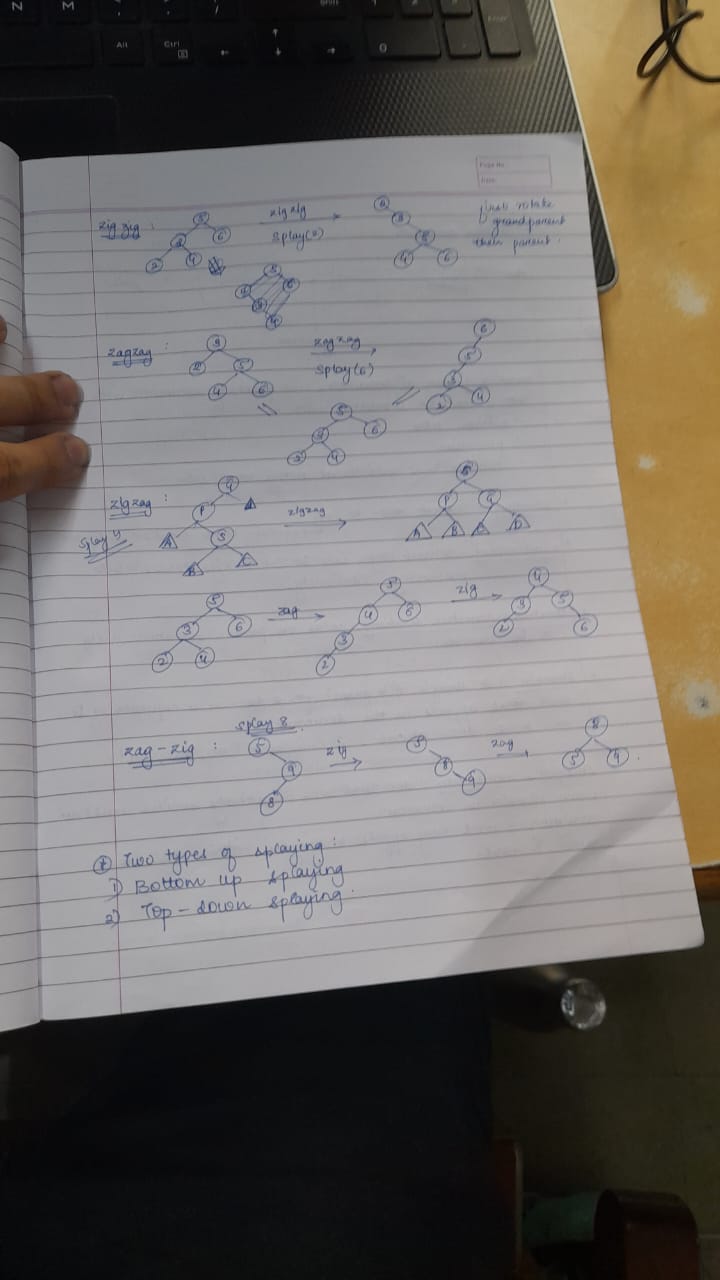 N M
Alt Ctrl
Enter
Page No
Date
zig zig :
5
3 6
2 4
zig zig
splay(2)
2
3
5
4 6
first rotate
grandparent
then parent.
zagzag :
3
2 5
4 6
zag zag
splay(6)
6
5
3
2 4
5
3 6
2 4
zigzag :
splay 4
P
A S
B C
zigzag
S
P
A B C D
5
3 6
2 4
zag
5
4 6
3
2
zig
4
3 5
2 6
splay 8
zag - zig :
5
9
8
zig
5
8
9
zag
8
5 9
* Two types of splaying :
1) Bottom up splaying
2) Top - down splaying.